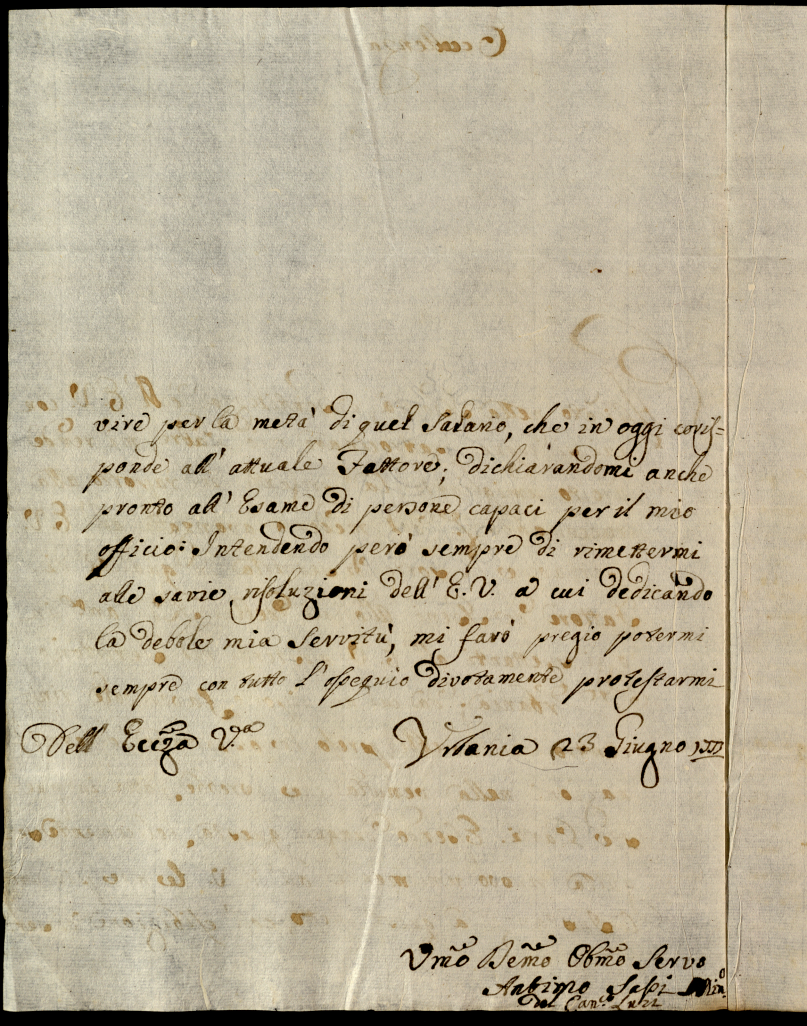 vire per la metà di quel Salario, che in oggi coris=
ponde all' attuale Fattore; dichiarandomi anche
pronto all' Esame di persone capaci per il mio
officio: Intendendo però sempre di rimettermi
alle savie risoluzioni dell' E. V. a cui dedicando
la debole mia servitù, mi farò pregio potermi
sempre con tutto l'ossequio divotamente protestarmi
Dell' Eccza V.a
Urbania 23 Giugno
Umo Demo Obmo Servo
Antimo
del Can.o Luzi